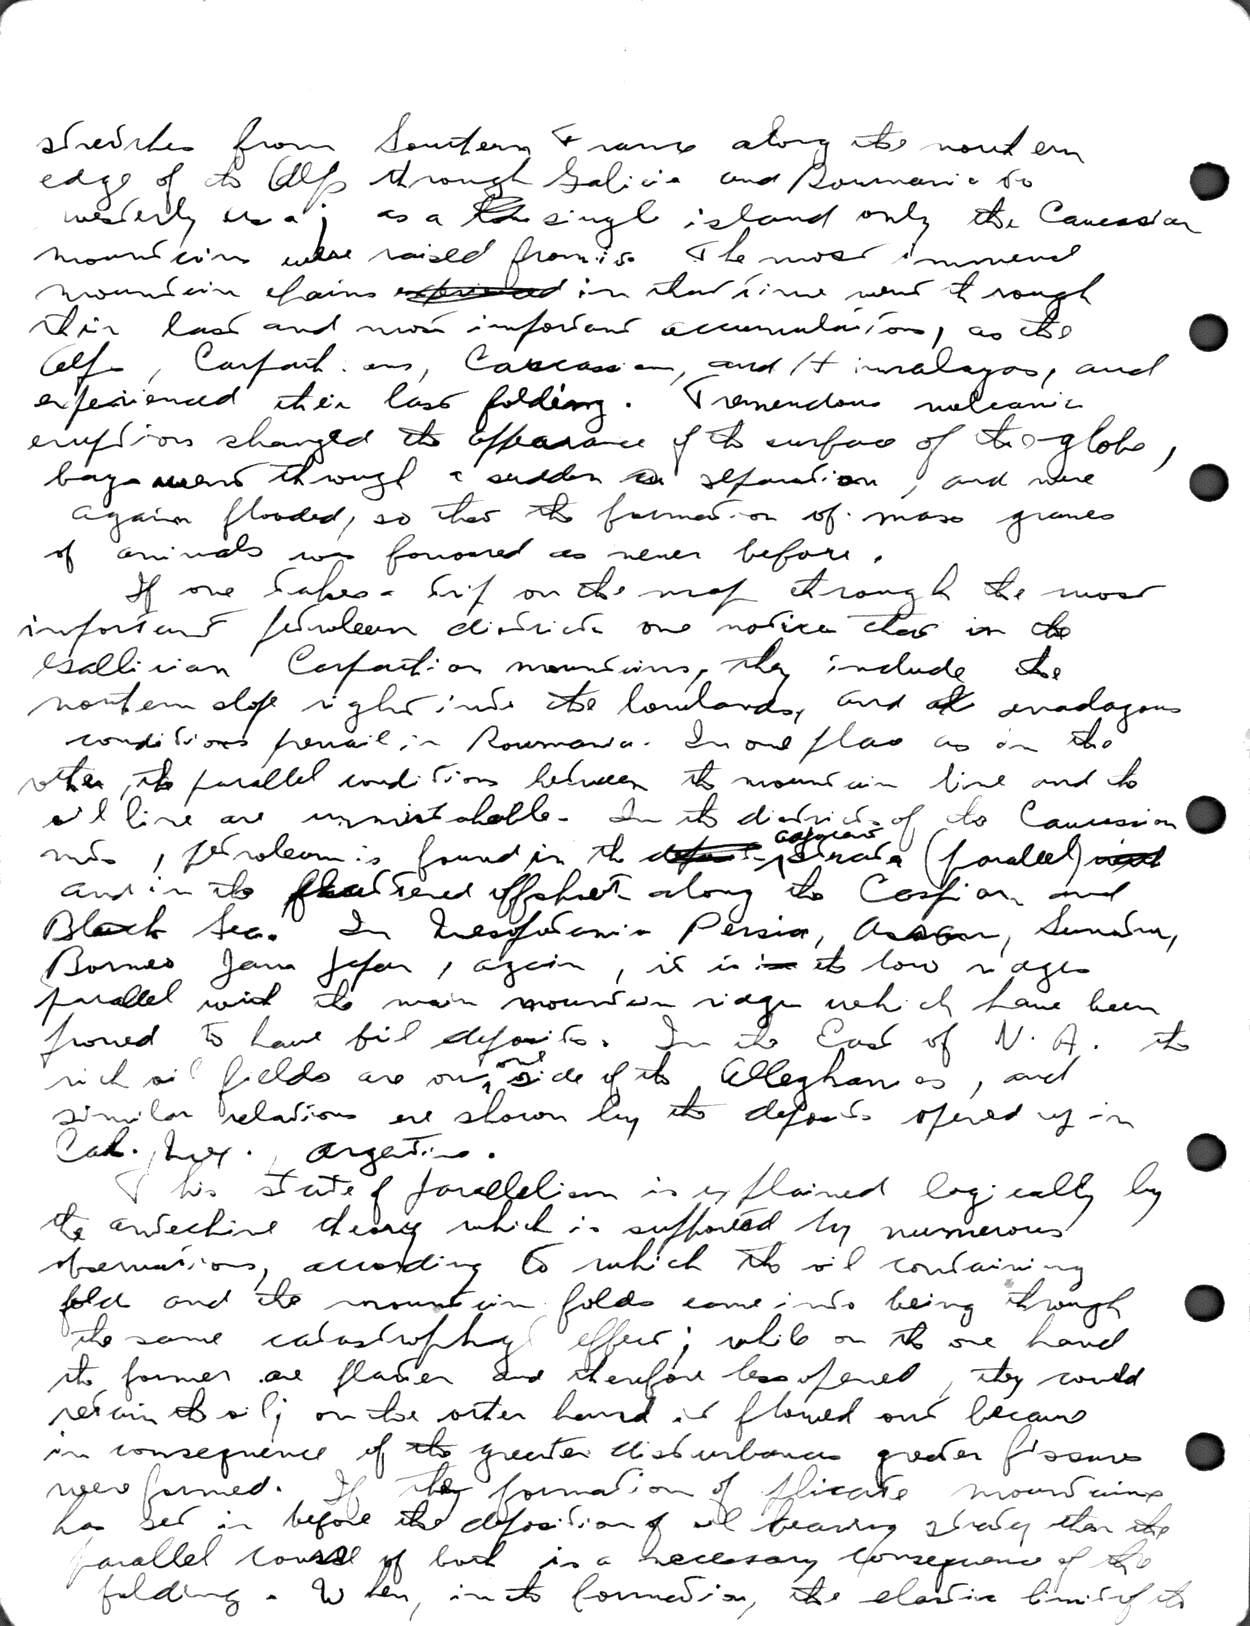 stretches from Southern France along the northern
edge of the Alps through Galicia and Roumania to
westerly ; as a single island only the Caucasian
mountains were raised from it. The most immense
mountain chains in that time went through
their last and most important accumulations, as the
Alps, Carpathians, Caucasian, and Himalayas, and
experienced their last folding. Tremendous volcanic
eruptions changed the appearance of the surface of the globe,
bays went through a sudden separation, and were
again flooded, so that the formation of mass graves
of animals was favoured as never before.
If one takes a trip on the map through the most
important petroleum districts one notices that in the
Gallician Carpathian mountains, they include the
northern slope right into the lowlands, and analagous
conditions prevail in Roumania. In one place as in the
other, the parallel conditions between the mountain line and the
oil line are unmistakable. In the districts of the Caucasian
mts, petroleum is found in the adjacent strata (parallel)
and in the flattened offshoot along the Caspian and
Black Sea. In Mesopotamia Persia, Assam, Sumatra,
Borneo Java Japan, again, it is in the low ridges
parallel with the main mountain ridge which have been
proved to have oil deposits. In the East of N. A. the
rich oil fields are on one side of the Alleghanies, and
similar relations are shown by the deposits opened up in
Cal., Mex., Argentine.
This state of parallelism is explained logically by
the anticline theory which is supported by numerous
observations, according to which the oil containing
folds and the mountain folds came into being through
the same catastrophy effect; while on the one hand
the former are flatter and therefore less opened, they could
retain the oil; on the other hand it flowed out because
in consequence of the greater disturbances greater fissures
were formed. If the formation of plicate mountains
has set in before the deposition of oil bearing strata, then the
parallel course of both is a necessary consequence of the
folding. When, in the formation, the elastic limit of the